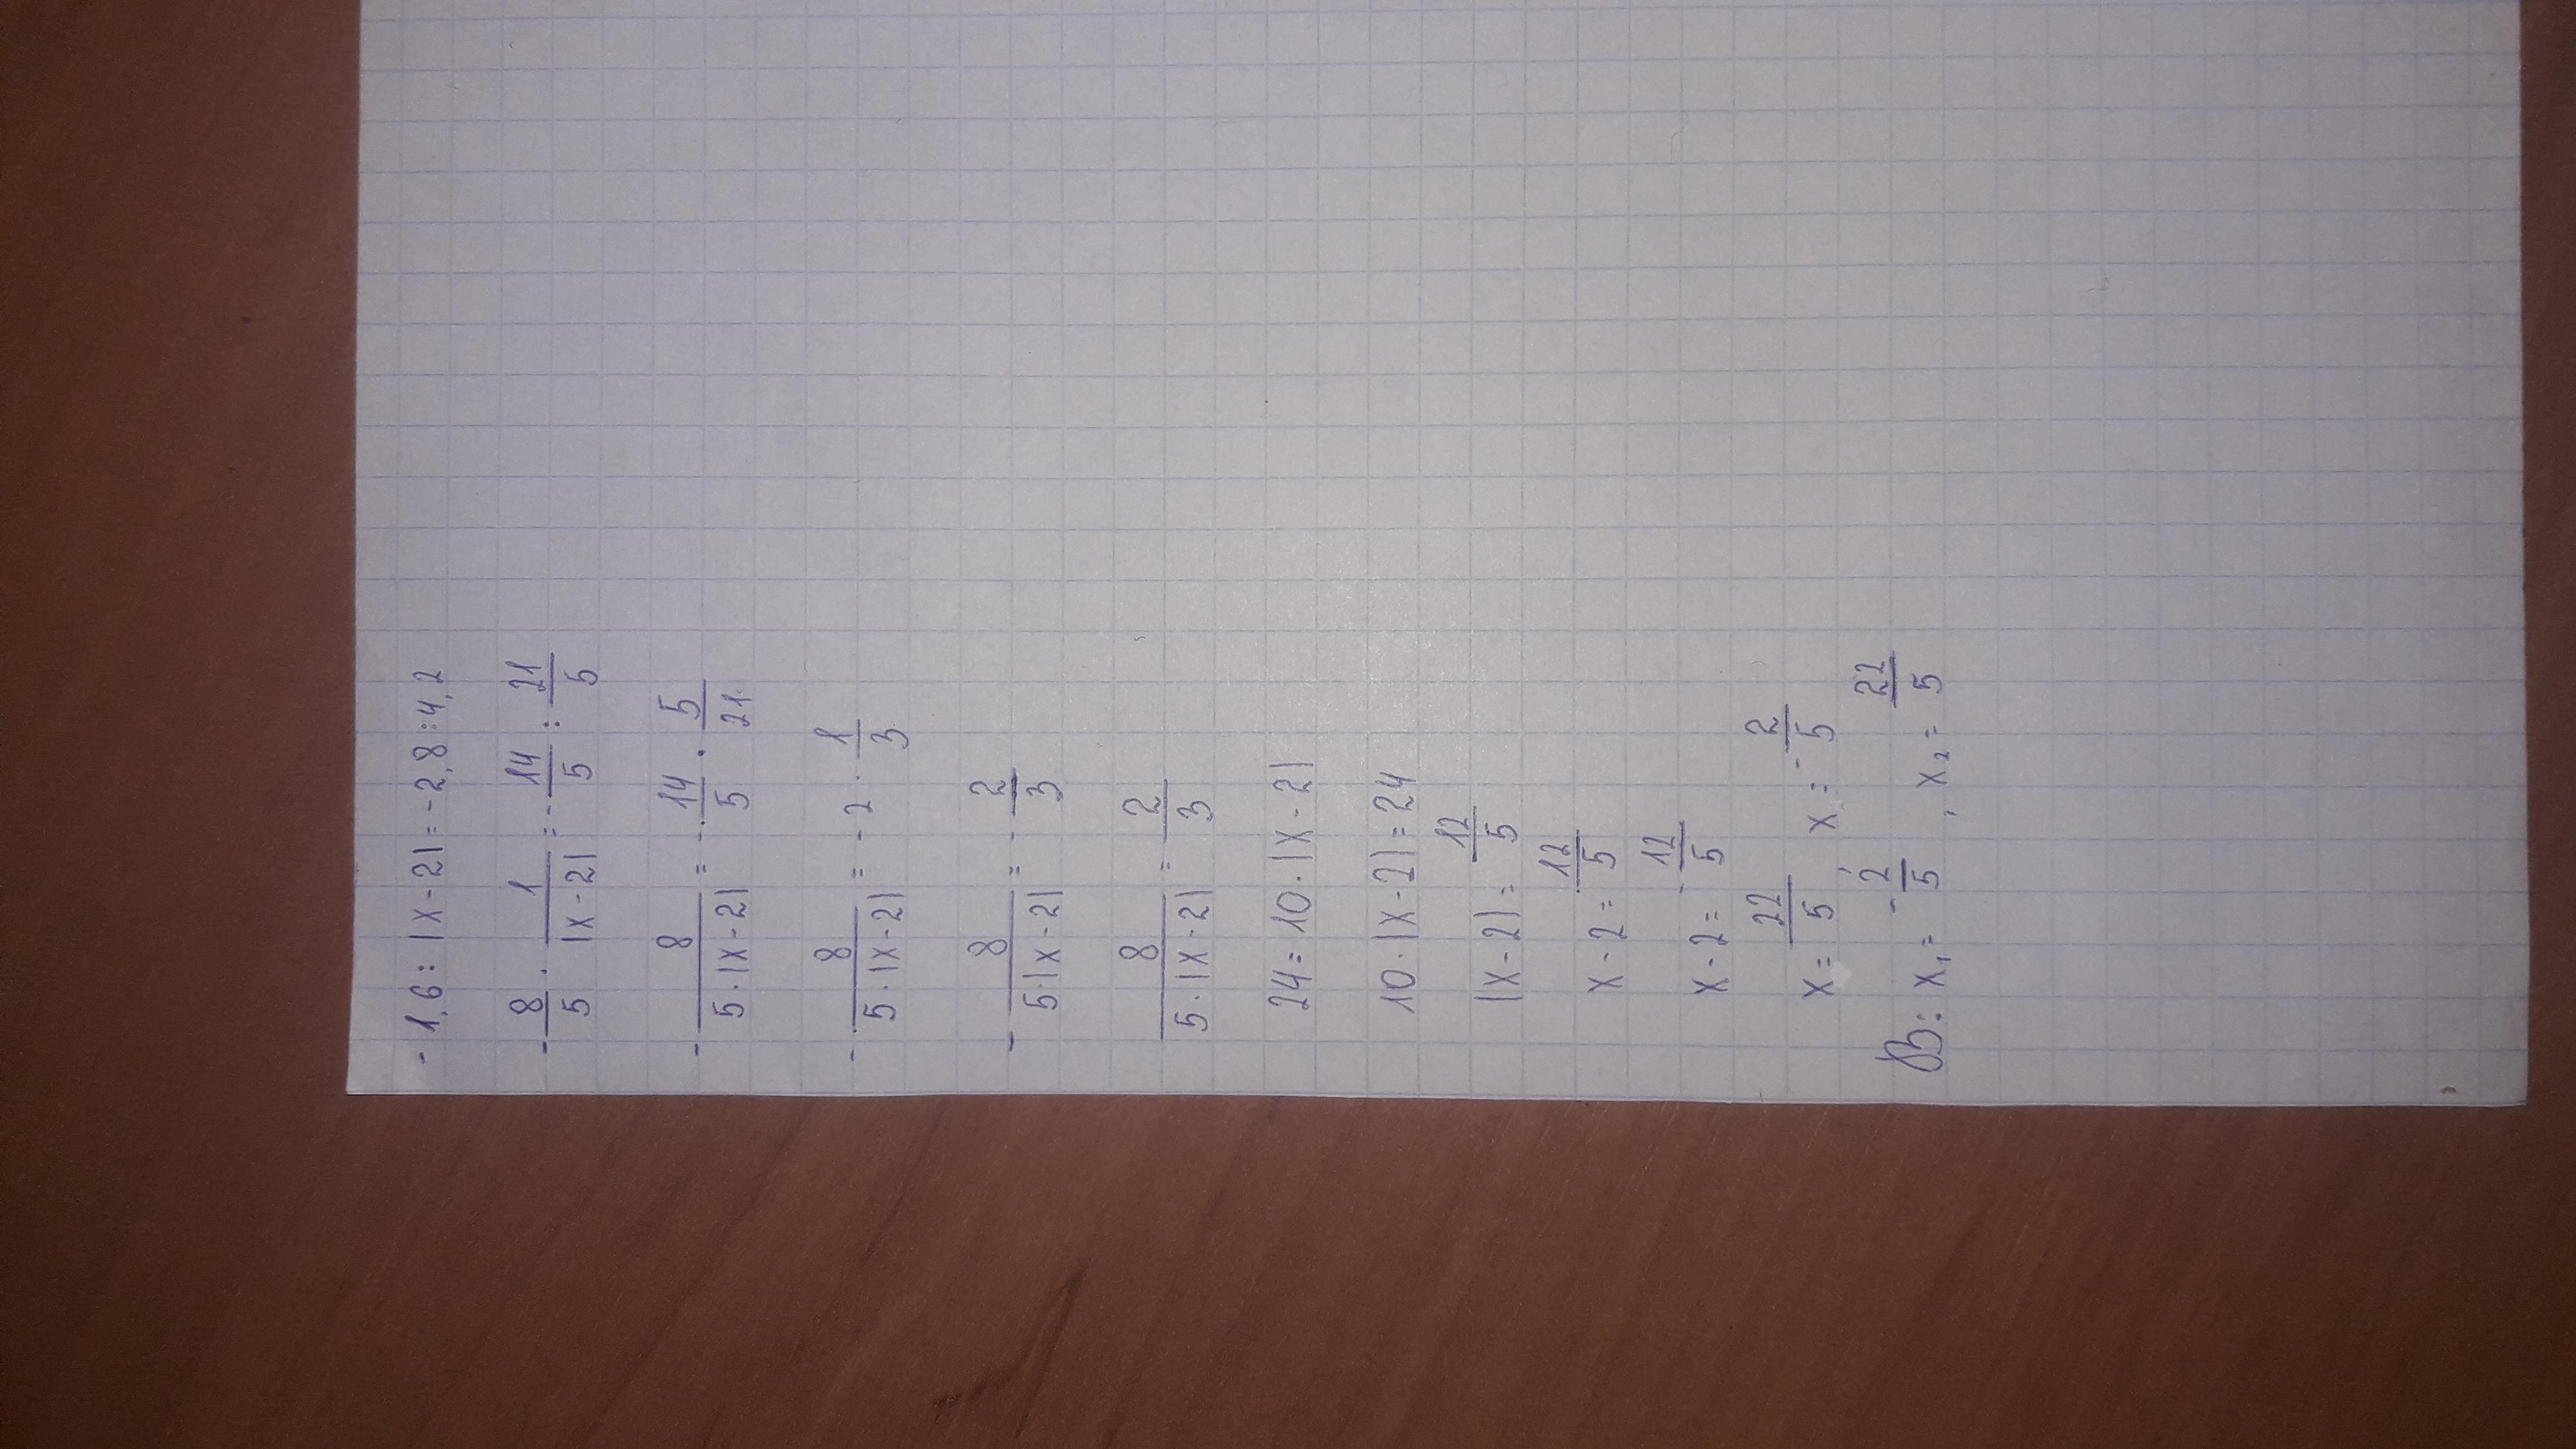 -1,6 : |x-2| = -2,8 : 4,2
-8/5 · 1/|x-2| = -14/5 : 21/5
-8/(5·|x-2|) = -14/5 · 5/21
-8/(5·|x-2|) = -2 · 1/3
-8/(5·|x-2|) = -2/3
8/(5·|x-2|) = 2/3
24 = 10·|x-2|
10·|x-2| = 24
|x-2| = 12/5
x-2 = 12/5
x-2 = -12/5
x = 22/5 x = -2/5
В: x₁ = -2/5, x₂ = 22/5